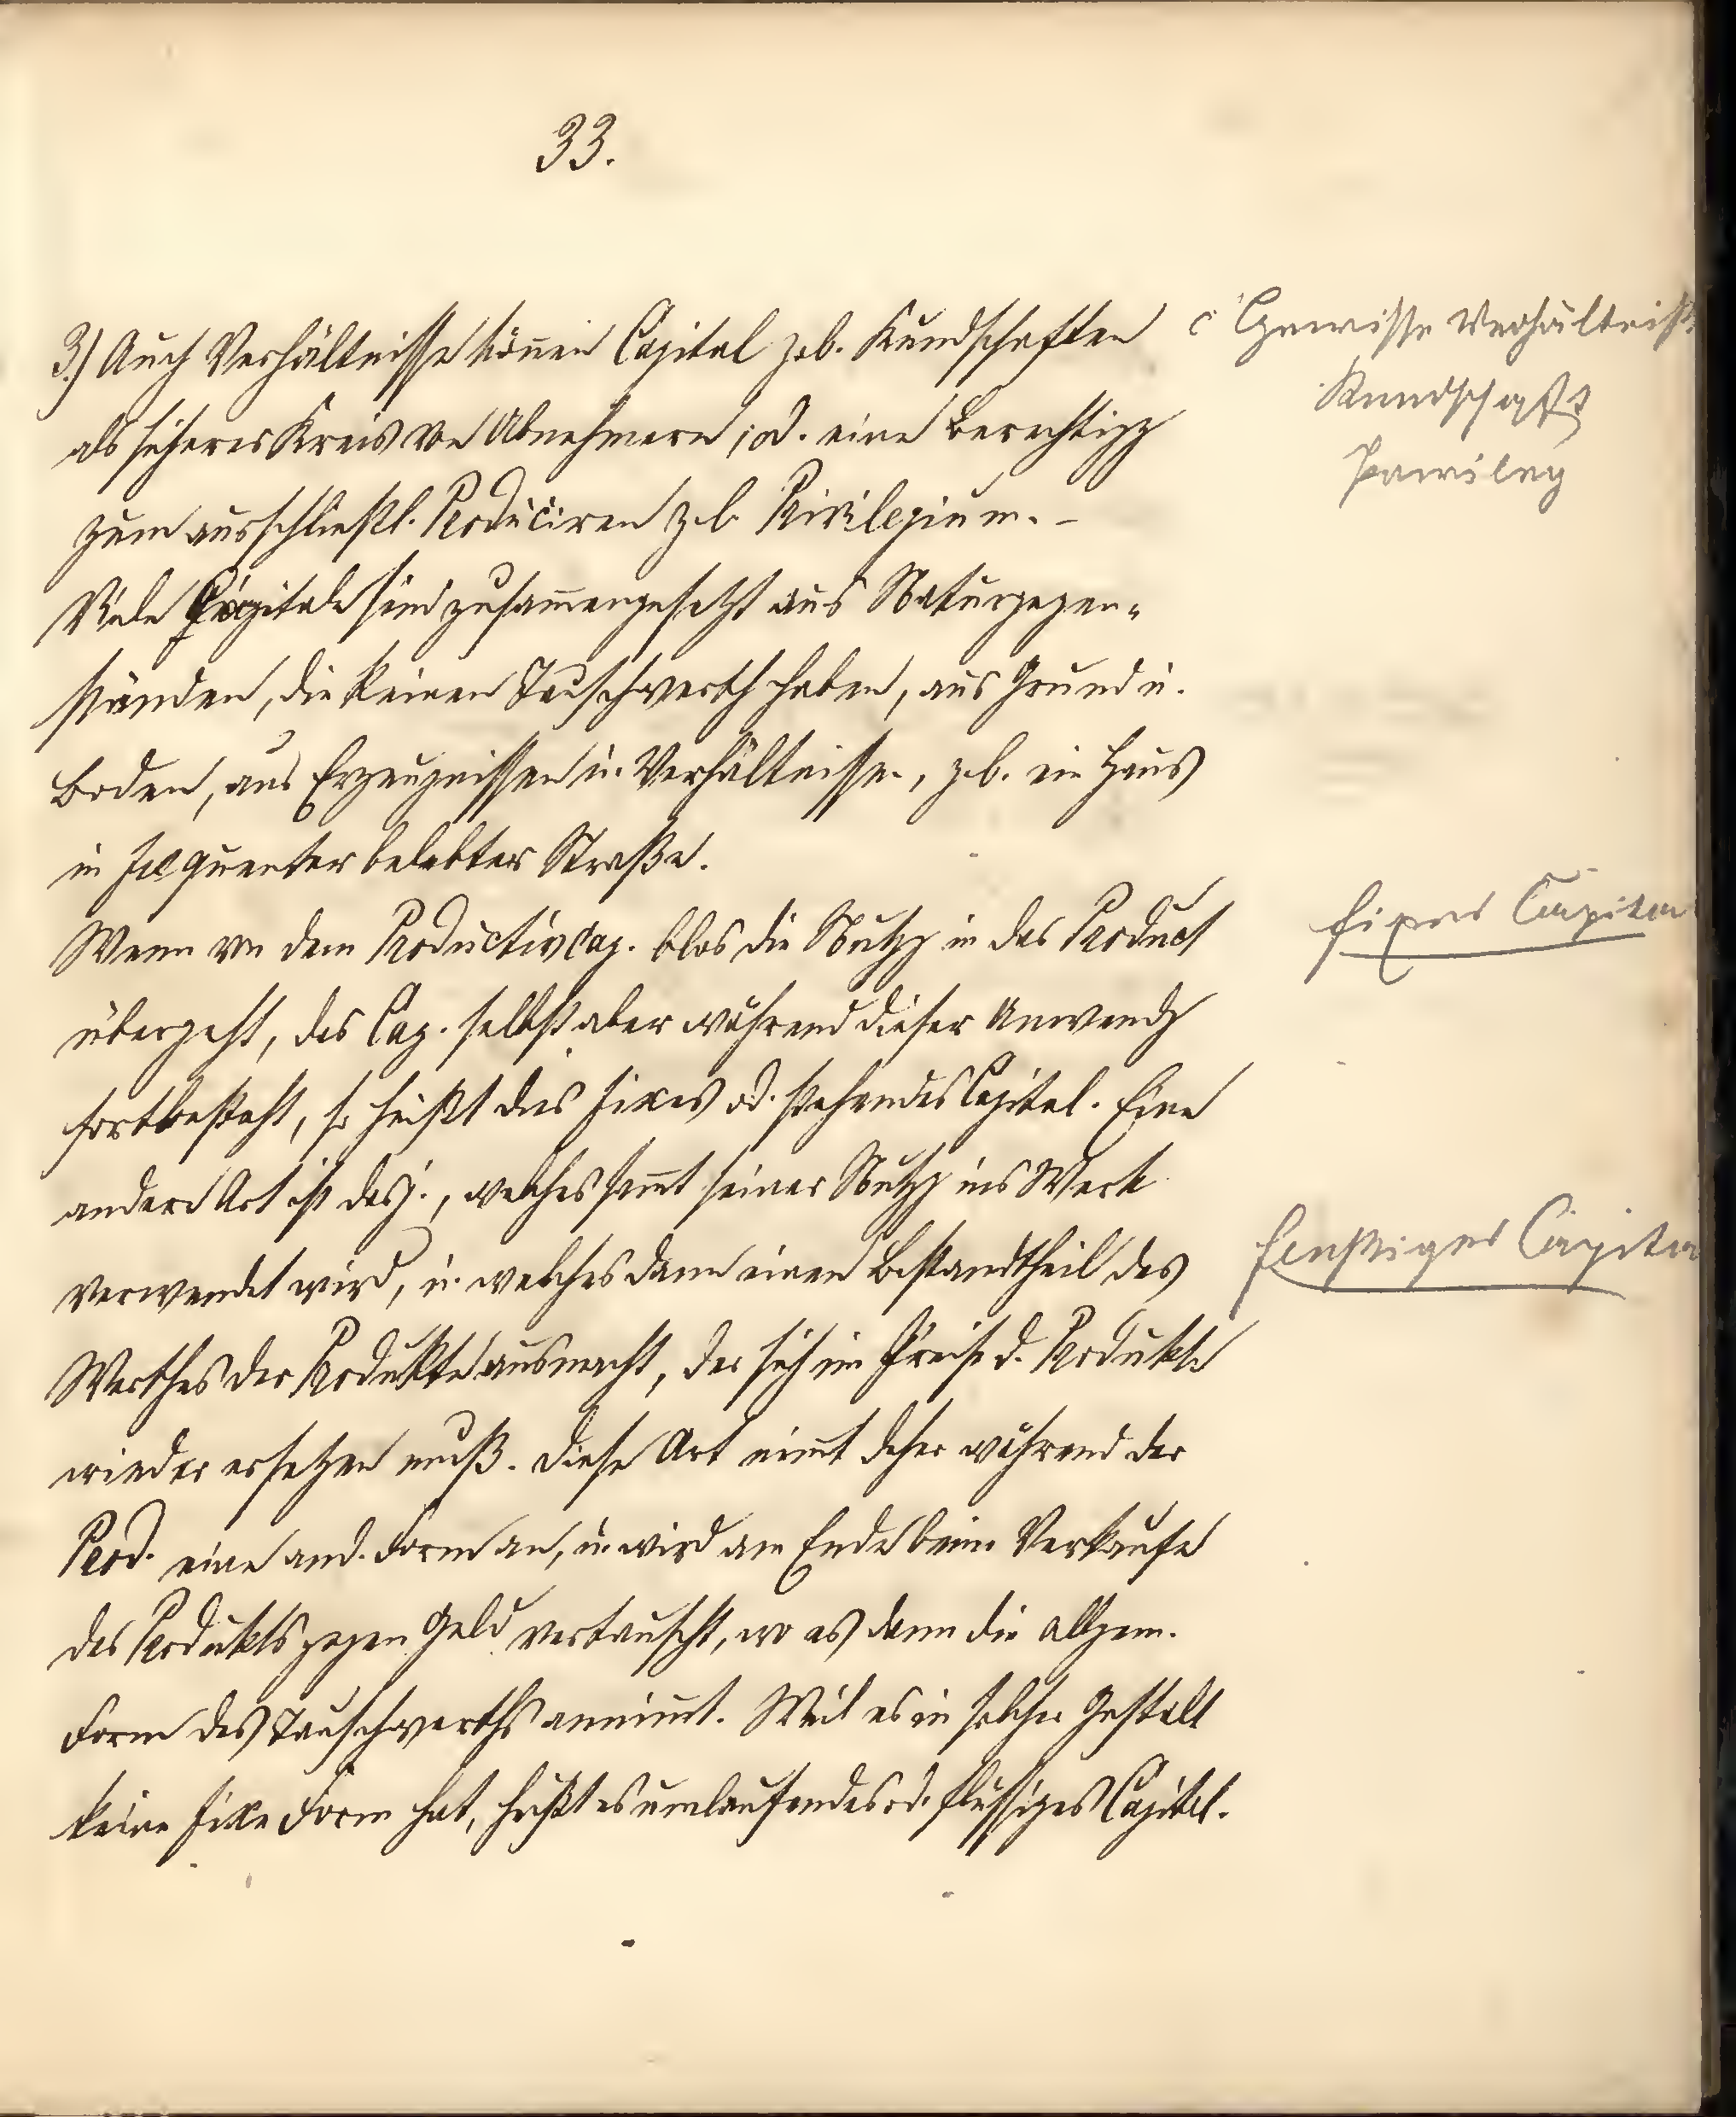 33.
3.) Auch Verhältnisse können Capital z.b. Kundschaften
als sicherer Kreis von Abnehmern; od. eine Berechtigg
zum ausschließl. Produciren z.b. Privilegium. –
Viele Capitale sind zusam̄engesetzt aus Naturgegen„
ständen, die keinen Tauschwerth haben, aus Grund u.
Boden, aus Erzeugnissen u. Verhältnisse., z.b. ein Haus
in frequenter belebter Straße.
Wenn von dem Productivcap. blos die Nutzg in das Product
übergeht, das Cap. selbst aber während dieser Anwendg
fortbesteht, so heißt dies fixes od. stehendes Capital. Eine
andere Art ist dasj., welches sam̄t seiner Nutzg ins Werk
verwendet wird, u. welches dann einen Bestandtheil des
Werthes der Produkte ausmacht, der sich im Preise d. Produkte
wieder ersetzen muß. Diese Art nim̄t daher während der
Prod. eine and. Form an, u. wird am Ende beim Verkaufe
des Produkts gegen Geld vertauscht, wo es dann die allgem.
Form des Tauschwerths annim̄t. Weil es in solcher Gestalt
keine fixe Form hat, heißt es umlaufendes od. flüssiges Capital.
c Gewisse Verhältniß
Kundschaft
Privileg
fixes Capita
flüssiges Capita